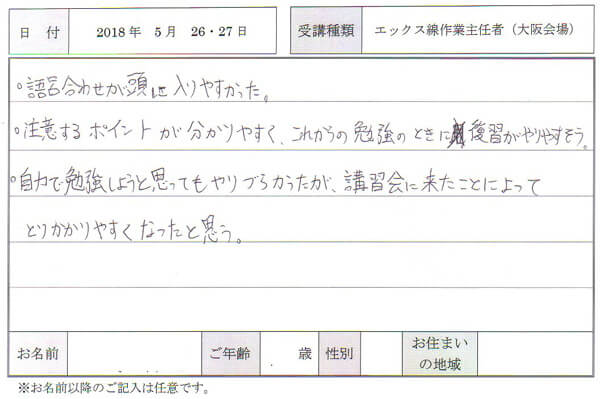 日 付 2018年 5月 26・27日 受講種類 エックス線作業主任者（大阪会場）
○語呂合わせが頭に入りやすかった。
○注意するポイントが分かりやすく、これからの勉強のときに復習がやりやすそう。
○自力で勉強しようと思ってもやりづらかったが、講習会に来たことによって
とりかかりやすくなったと思う。
お名前 ご年齢 歳 性別 お住まい
の地域
※お名前以降のご記入は任意です。